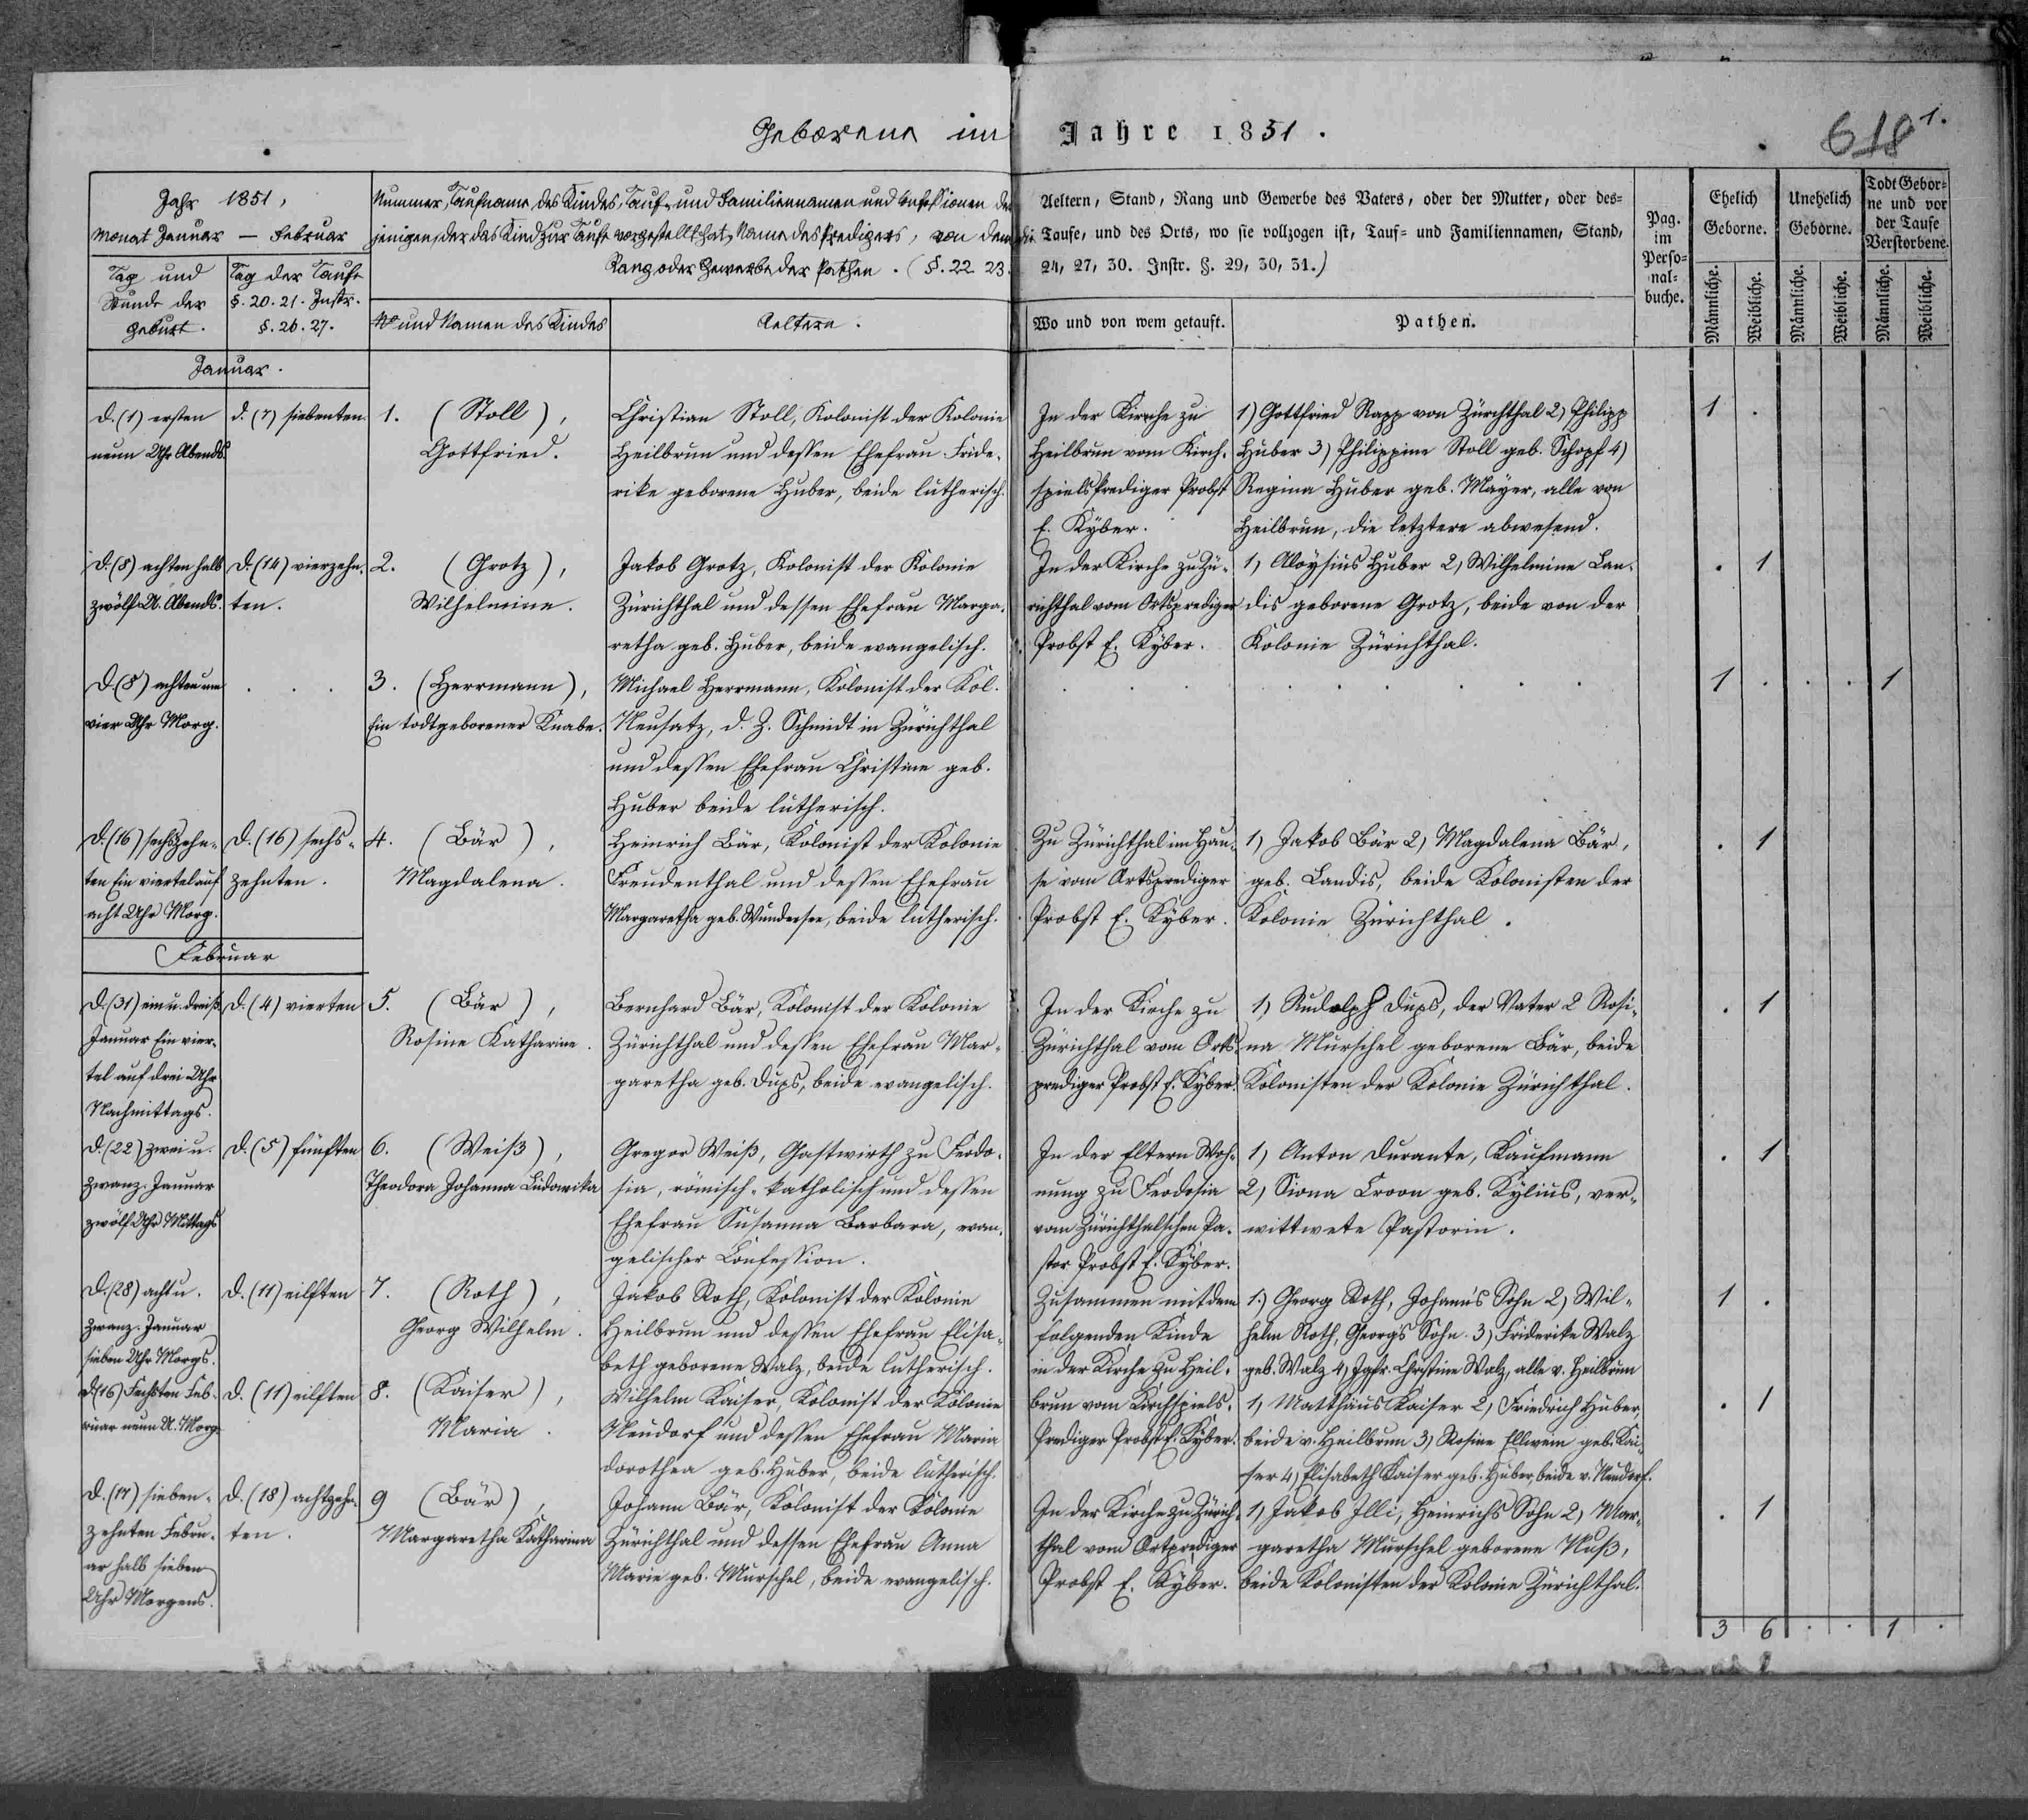 Geborene im Jahre 1851.
618 1.
Jahr 1851,
Monat Januar — Februar
Tag und
Stunde der
Geburt.
Tag der Taufe
§. 20. 21. Instr.
§. 26. 27.
Nummer, Taufname des Kindes, Tauf- und Familiennamen und Confessionen der Aeltern, Stand, Rang und Gewerbe des Vaters, oder der Mutter, oder des-
jenigen, der das Kind zur Taufe vorgestellt hat, Name des Predigers, von dem die Taufe, und des Orts, wo sie vollzogen ist, Tauf- und Familiennamen, Stand,
Rang oder Gewerbe der Pathen. (§. 22 23. 24, 27, 30. Instr. §. 29, 30, 31.)
No und Namen des Kindes
Aeltern.
Wo und von wem getauft.
Pathen.
Pag.
im
Perso-
nal-
buche.
Ehelich
Geborne.
Unehelich
Geborne.
Todt Gebor-
ne und vor
der Taufe
Verstorbene.
Männliche.
Weibliche.
Männliche.
Weibliche.
Männliche.
Weibliche.
Januar.
D. (1) ersten
neun Uhr Abends.
d. (7) siebenten.
1. (Stoll),
Gottfried.
Christian Stoll, Kolonist der Kolonie
Heilbrun und dessen Ehefrau Fride-
rike geborene Huber, beide lutherisch.
In der Kirche zu
Heilbrun vom Kirch-
spielsprediger Probst
E. Kyber.
1) Gottfried Rapp von Zürchthal 2) Philipp
Huber 3) Philippine Stoll geb. Schopf 4)
Regina Huber geb. Mayer, alle von
Heilbrun, die letztere abwesend.
1 .
D. (8) achten halb
zwölf U. Abends.
D. (14) vierzehn-
ten.
2. (Grotz),
Wilhelmine.
Jakob Grotz, Kolonist der Kolonie
Zürichthal und dessen Ehefrau Marga-
retha geb. Huber, beide evangelisch.
In der Kirche zu Zü-
richthal vom Ortsprediger
Probst E. Kyber.
1) Aloysius Huber 2) Wilhelmine Lan-
dis geborene Grotz, beide von der
Kolonie Zürichthal.
. 1
D. (8) achten um
vier Uhr Morg.
. . .
3. (Herrmann),
Ein todtgeborener Knabe.
Michael Herrmann, Kolonist der Kol.
Neusatz, d. Z. Schmidt in Zürichthal
und dessen Ehefrau Christine geb.
Huber beide lutherisch.
1 . . . 1
D. (16) sechszehn-
ten Ein viertel auf
acht Uhr Morg.
D. (16) sechs-
zehnten.
4. (Bär),
Magdalena.
Heinrich Bär, Kolonist der Kolonie
Freudenthal und dessen Ehefrau
Margaretha geb. Wundersee, beide lutherisch.
Zu Zürichthal im Hau-
se vom Ortsprediger
Probst E. Kyber.
1) Jakob Bär 2) Magdalena Bär,
geb. Landis, beide Kolonisten der
Kolonie Zürichthal.
. 1
Februar
D. (31) ein u. dreiß.
Januar Ein vier-
tel auf drei Uhr
Nachmittags.
D. (4) vierten
5. (Bär),
Rosine Katharine.
Bernhard Bär, Kolonist der Kolonie
Zürichthal und dessen Ehefrau Mar-
garetha geb. Dups, beide evangelisch.
In der Kirche zu
Zürichthal vom Orts-
prediger Probst E. Kyber.
1) Rudolph Dups, der Vater 2 Rosi-
na Murschel geborene Bär, beide
Kolonisten der Kolonie Zürichthal.
. 1
D. (22) zwei u.
zwanz. Januar
zwölf Uhr Mittags
D. (5) fünften
6. (Weiß),
Theodora Johanna Ludowika
Gregor Weiß, Gastwirth zu Feodo-
sia, römisch-katholisch und dessen
Ehefrau Susanna Barbara, evan-
gelischer Confession.
In der Eltern Woh-
nung zu Feodosia
vom Zürichthalschen Pa-
stor Probst E. Kyber.
1) Anton Durante, Kaufmann
2) Siona Croon geb. Kylius, ver-
wittwete Pastorin.
. 1
D. (28) acht u.
zwanz. Januar
sieben Uhr Morgs.
D. (11) eilften
7. (Roth),
Georg Wilhelm.
Jakob Roth, Kolonist der Kolonie
Heilbrun und dessen Ehefrau Elisa-
beth geborene Walz, beide lutherisch.
Zusammen mit dem
folgenden Kinde
in der Kirche zu Heil-
brun vom Kirchspiels-
Prediger Probst E. Kyber.
1.) Georg Roth, Johann's Sohn 2) Wil-
helm Roth, Georg's Sohn. 3) Friderike Walz
geb. Walz 4) Jgfr. Christine Walz, alle v. Heilbrun
1 .
d (16) Sechsten Feb-
ruar neun U. Morg.
D. (11) eilften
8. (Kaiser),
Maria.
Wilhelm Kaiser, Kolonist der Kolonie
Neudorf und dessen Ehefrau Maria
Dorothea geb. Huber, beide lutherisch.
1) Matthäus Kaiser 2) Friedrich Huber,
beide v. Heilbrun 3) Rosine Ellwein geb. Kai-
ser 4) Elisabeth Kaiser geb. Huber, beide v. Neudorf.
. 1
D. (17) sieben-
zehnten Febru-
ar halb sieben
Uhr Morgens.
D. (18) achtzehn-
ten.
9 (Bär),
Margaretha Katharina
Johann Bär, Kolonist der Kolonie
Zürichthal und dessen Ehefrau Anna
Marie geb. Murschel, beide evangelisch.
In der Kirche zu Zürich-
thal vom Ortprediger
Probst E. Kyber.
1) Jakob Illi, Heinrichs Sohn 2) Mar-
garetha Murschel geborene Nuß,
beide Kolonisten der Kolonie Zürichthal.
. 1
3 6 . . 1 .